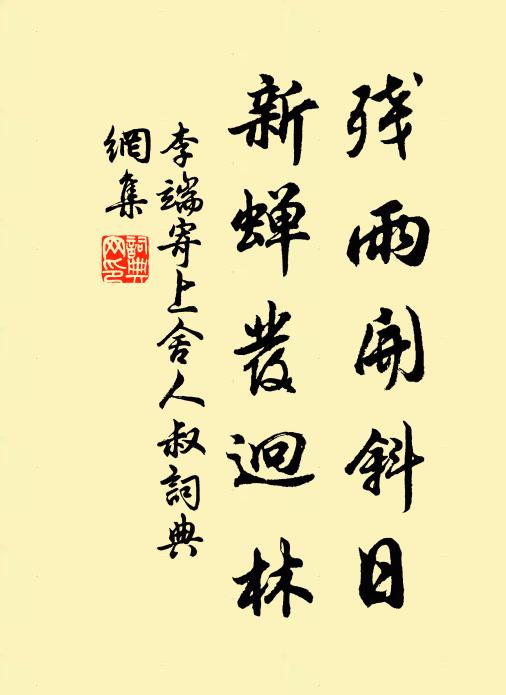 残雨開斜日
新蝉發迥林
李端寄上舍人叔詞典
網集
詞典
网印